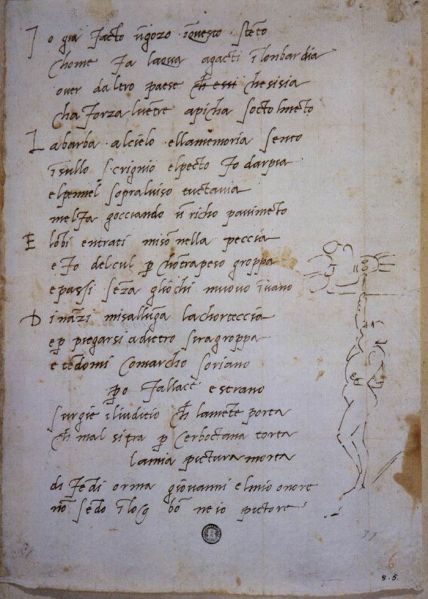 I o gia facto ũgozo ĩquesto stẽto
chome fa laqua agacti ĩlonbardia
over daltro paese ch essi chesisia
cha forza luẽtre apicha soctolmẽto
L abarba alcielo ellamemoria sento
ĩsullo scrignio elpecto fo darpia
elpennel sopraluiso tuctavia
melfa gocciando ũ richo pauimẽto
E lobi entrati misõ nella peccia
e fo delcul p chõtrapeso groppa
e passi sẽza gliochi muouo ĩuano
D inãzi misalluga lachorteccia
e p piegarsi adietro siragroppa
e tẽdomi comarcho soriano
po fallace e strano
surgie iliuditio ch lamẽte porta
ch mal sitra p cerboctana torta
lamia pictura morta
di fedi orma giovanni elmio onore
nõ sẽdo ĩlog bõ ne io pictore